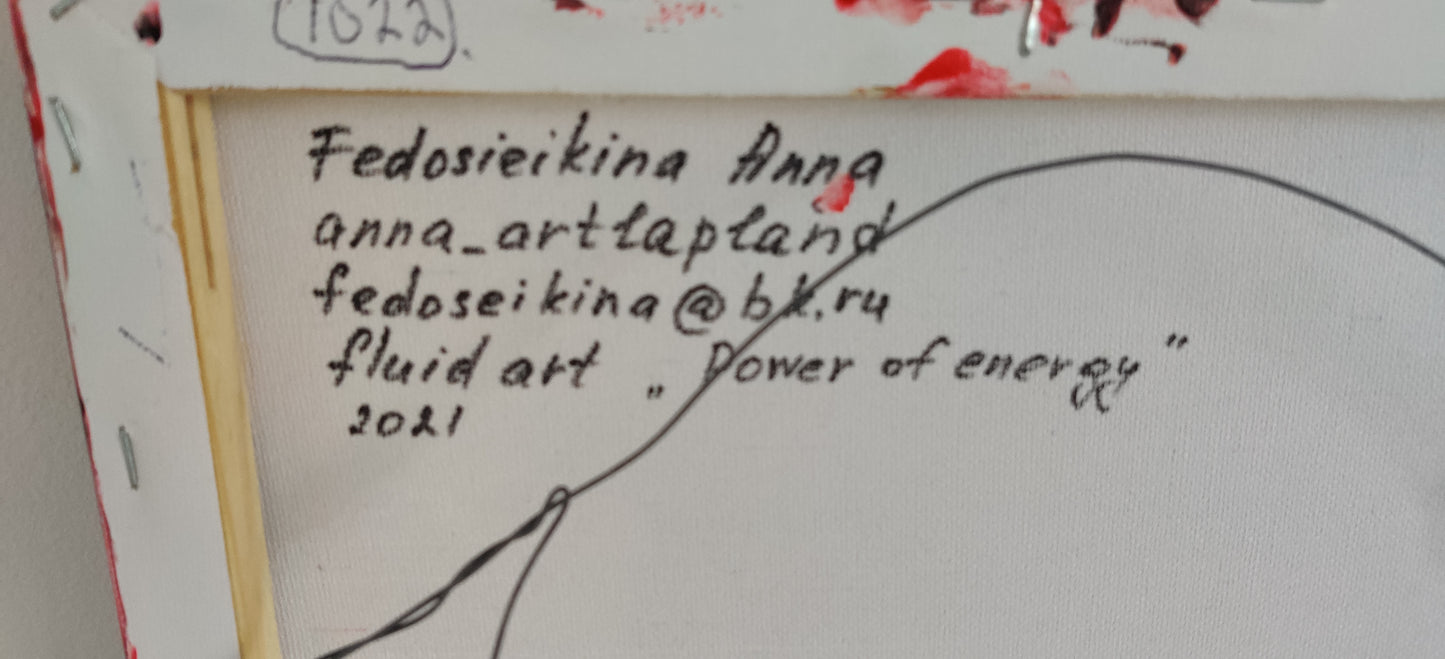 1022.
Fedosieikina Anna
anna_artlapland
fedoseikina@bk.ru
fluid art „Power of energy”
2021